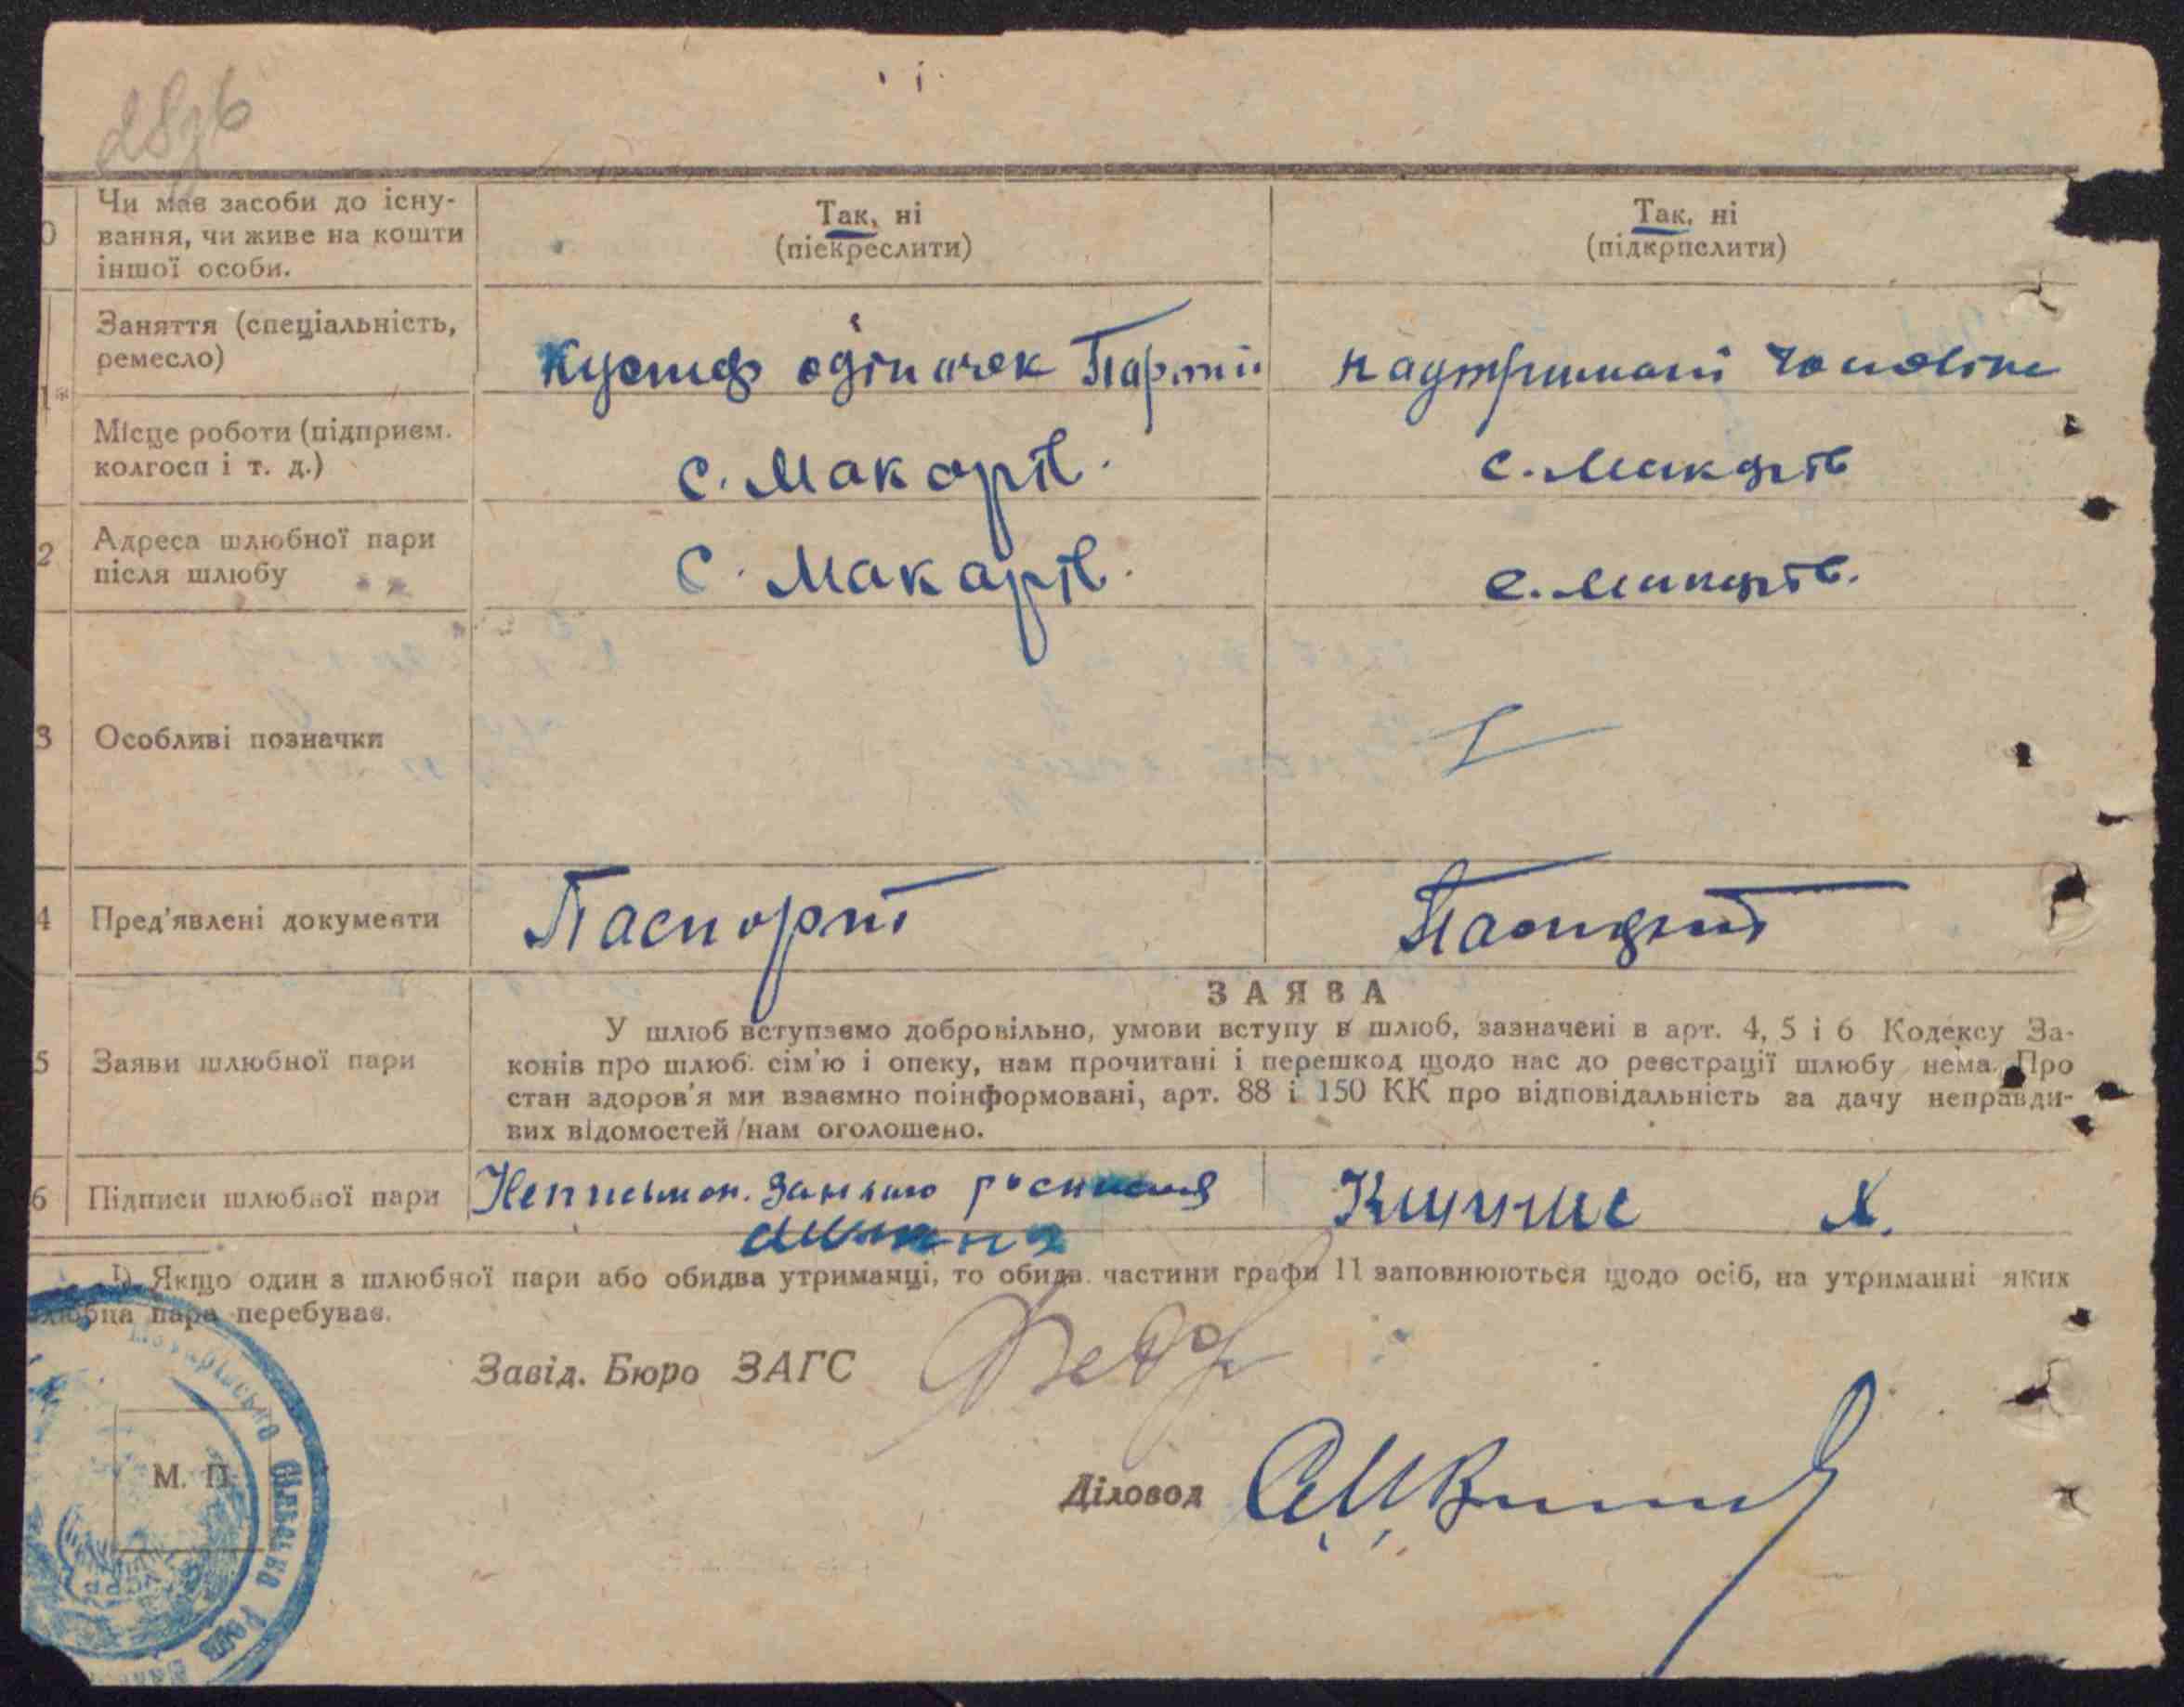 Чи має засоби до існу-
вання, чи живе на кошти
іншої особи.
Так, ні
(піекреслити)
Так, ні
(підкрпслити)
Заняття (спеціальність,
ремесло)
Кустар одіначек
на утриманні чоловіка
Місце роботи (підприєм.
колгосп і т. д.)
с. Макарів.
с. Макарів
2 Адреса шлюбної пари
після шлюбу
с. Макарів.
с. Макарів.
3 Особливі позначки
4 Пред'явлені документи
Паспорт
Паспорт
ЗАЯВА
5 Заяви шлюбної пари
У шлюб вступаємо добровільно, умови вступу в шлюб, зазначені в арт. 4, 5 і 6 Кодексу За-
конів про шлюб. сім'ю і опеку, нам прочитані і перешкод щодо нас до реєстрації шлюбу нема. Про
стан здоров'я ми взаємно поінформовані, арт. 88 і 150 КК про відповідальність за дачу неправди-
вих відомостей нам оголошено.
6 Підписи шлюбної пари
Неписьмен.
1) Якщо один з шлюбної пари або обидва утриманці, то обидв. частини графи 11 заповнюються щодо осіб, на утриманні яких
шлюбна пара перебуває.
Завід. Бюро ЗАГС
М. П.
Діловод